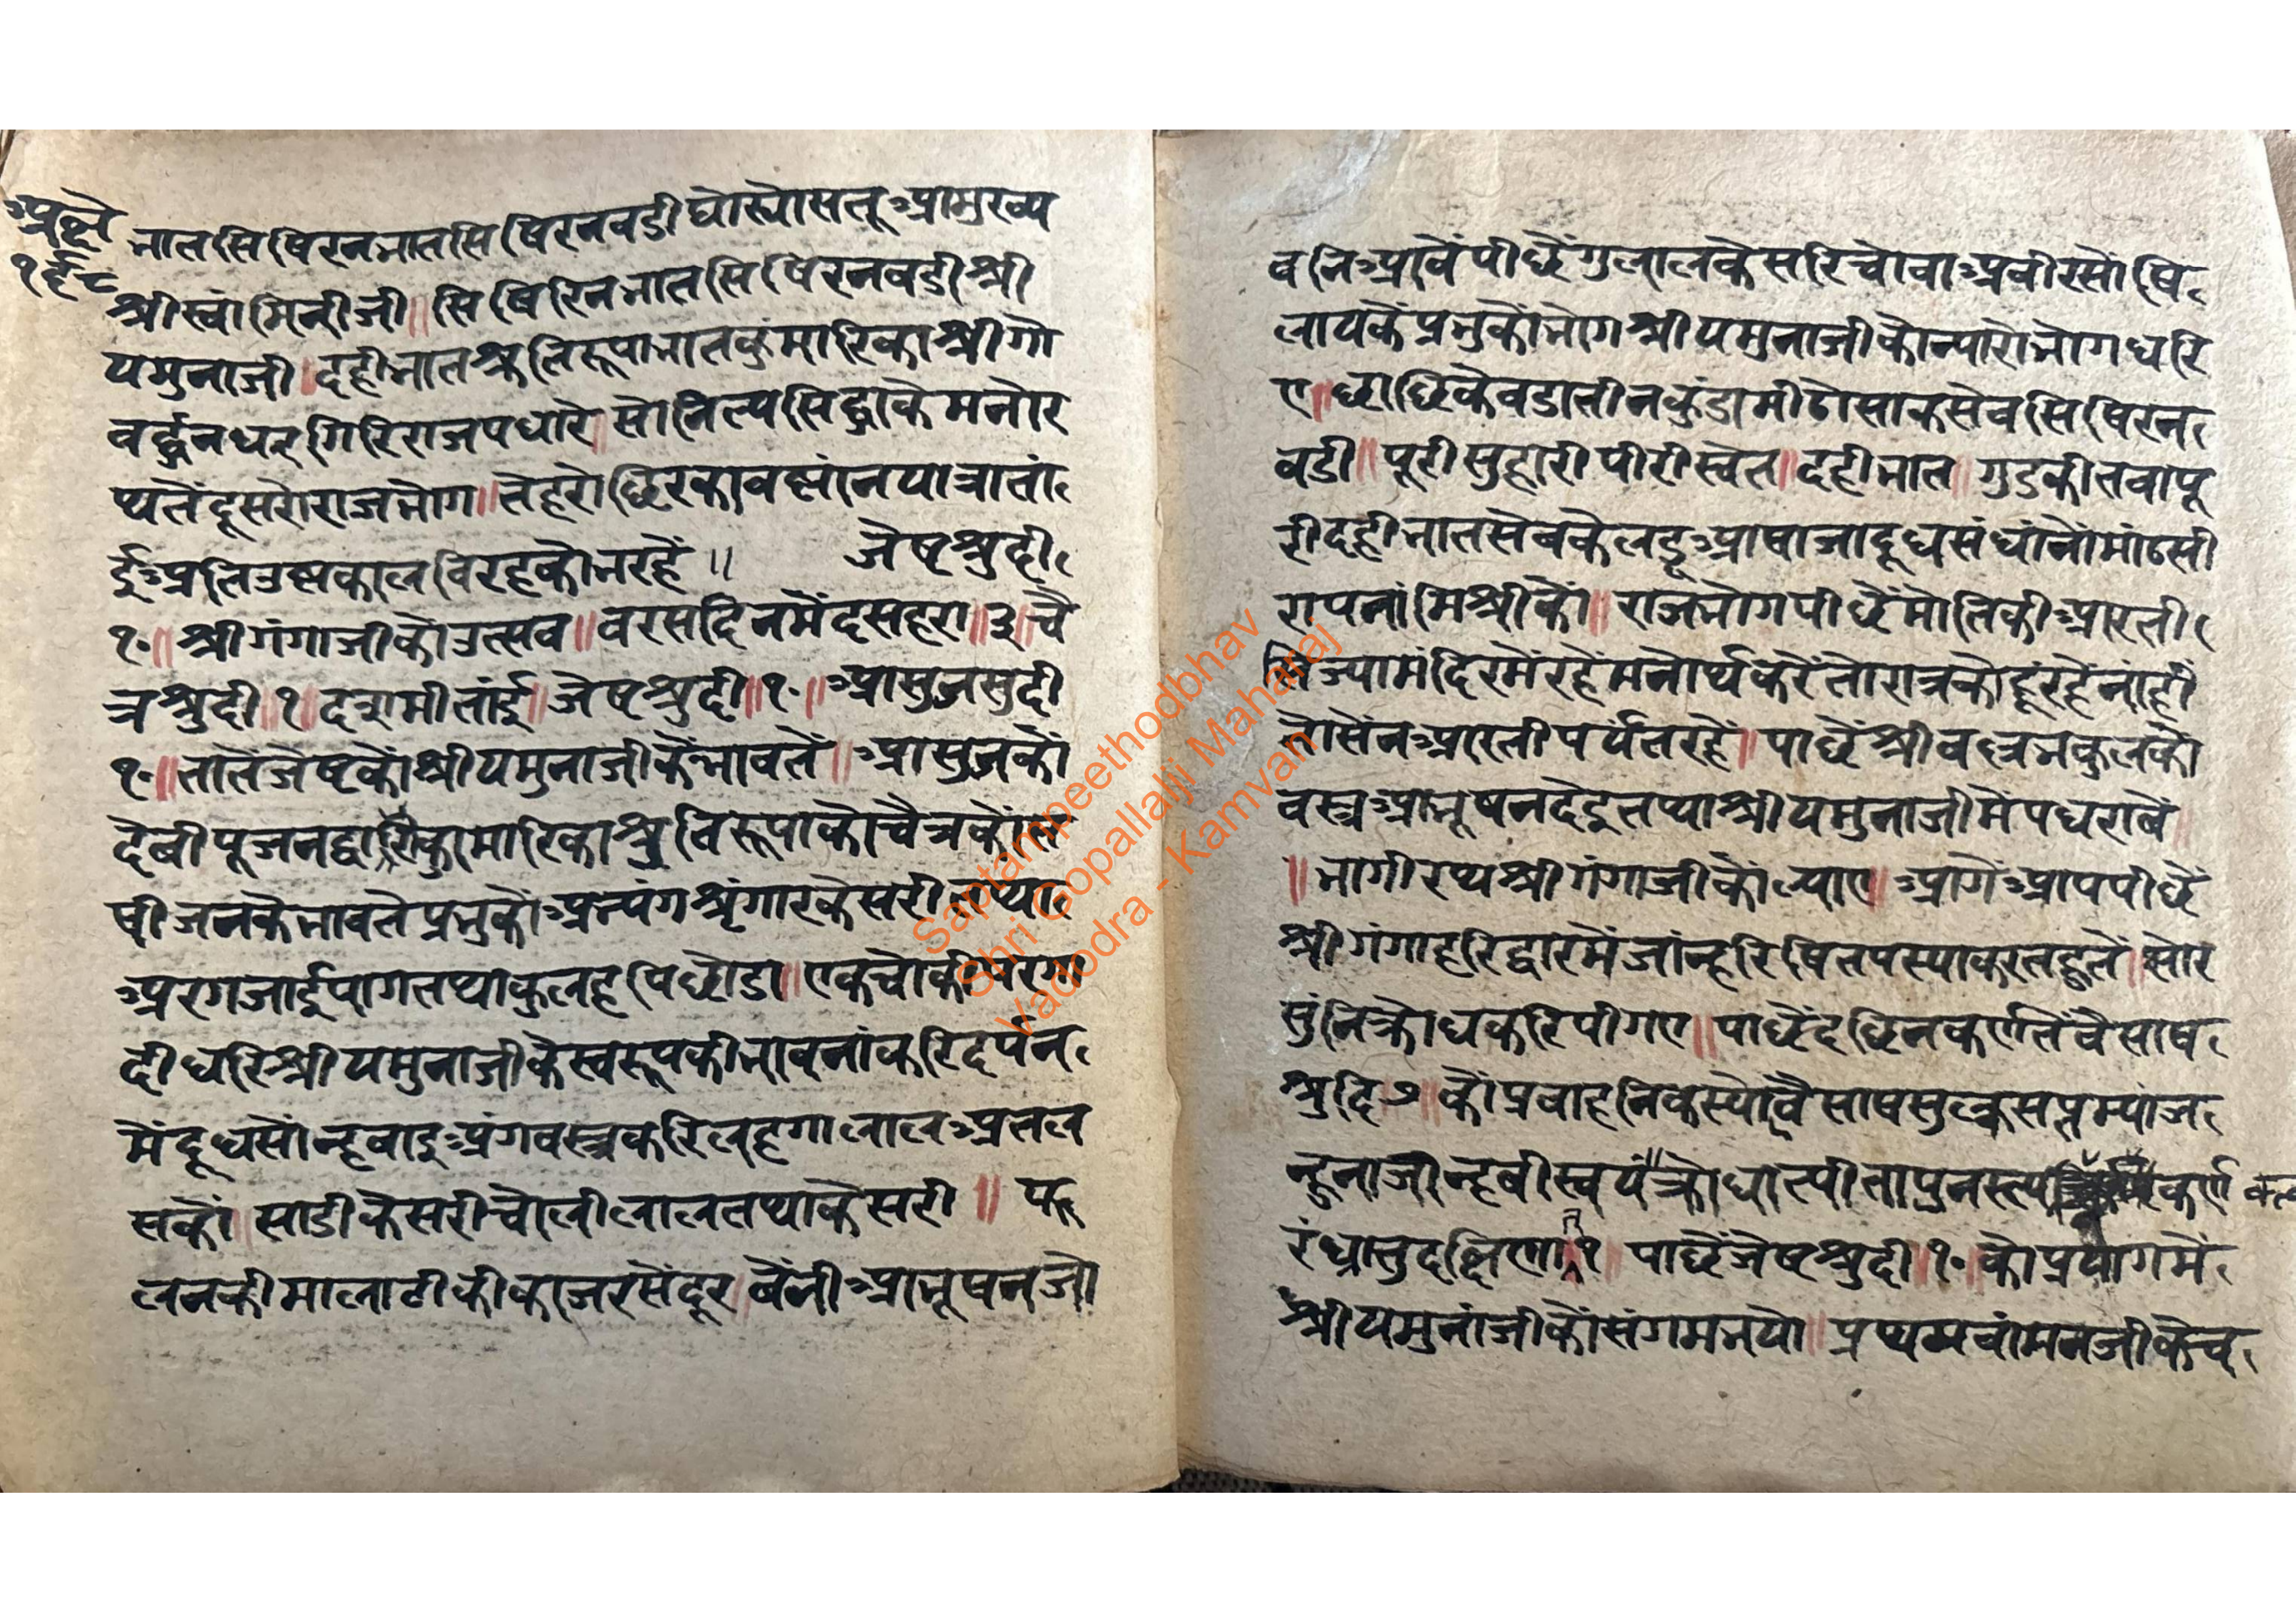 अक्षै
१९८
भातसिषिरनभातसिषिरनवडीघोस्योसतूआमुख्य
श्रीस्वांमिनीजी॥सिषिरिनभातसिषिरनवडीश्री
यमुनाजी।दहीभातश्रुतिरूपाभातकुंमारिकाश्रीगो
वर्द्धनधरगिरिराजपधारे।सोनित्यसिद्धाकेमनोर
थतेंदूसरोराजभोग॥तेहरोछिरकावष्मांनयात्रातां
ईअतिउष्मकालविरहकोनरहें॥ जेष्टश्रुदी
१॰॥श्रीगंगाजीकोउत्सव॥वरसदिनमेंदसहरा॥३॥चै
त्रश्रुदी॥१॥दशमीतांई॥जेष्टश्रुदी॥१॰॥आसुजसुदी
१॰॥तातेंजेष्टकोंश्रीयमुनाजीकेंभावतें॥आसुजकों
देवीपूजनद्वाराकुमारिकाश्रुतिरूपाकोचैत्रकोंस
षीजनकेभावतेप्रभुकोंअभ्यंगश्रृंगारकेसरीतथा
अरगजाईपागतथाकुलहपिछोडा॥एकचोकीपरगा
दीधरिश्रीयमुनाजीकेस्वरूपकीभावनांकरिदर्पन
मेंदूधसोंन्हवाइअंगवस्त्रकरिलहगालालअतल
सकों॥साडीकेसरीचोलीलालतथाकेसरी॥फू
लनकीमालाटीकीकाजरसेंदूर॥वेंनीआभूषनजो
वनिआवेंपीछेंगुलालकेसरिचोवाअवीरसोंषि
लायकेंप्रभुकोंभोगश्रीयमुनाजीकोन्यारोभोगधरि
ए॥छाछिकेवडातीनकुंडामीठोसाकसेवसिषिरन
वडी॥पूरीसुहारीपीरीस्वेत॥दहीभात॥गुडकीतवापू
रीदहीभातसेवकेलडूआषाजादूधसंधांनोंमांठसी
रापनांमिश्रीकों॥राजभोगपीछेंमोतिकीआरती
सिज्यामंदिरमेंरहेंमनोर्थकरेंतोरात्रकोहूंरहेनांहीं
तोसेंनआरतीपर्यंतरहें॥पाछेंश्रीवल्लभकुलकों
वस्त्रआभूषनदेइतथाश्रीयमुनाजीमेंपधरावें
॥भागीरथश्रीगंगाजीकोंल्याए॥आगेंआपपीछें
श्रीगंगाहरिद्वारमेंजांन्हरिषितपस्याकरतहुतें॥सोर
सुंनिक्रोधकरिपीगए॥पाछेंदछिनकर्णतेंवैसाष
श्रुदि७॥कोंप्रवाहनिकस्योवैसाषसुत्क्लसप्तम्यांज
न्हुनाजान्हवीस्वयंक्रोधात्पीतापुनस्त्यकर्ण
रंध्रात्तुदक्षिणात्१॥पाछेंजेष्टश्रुदी॥१॰॥कोप्रयागमें
श्रीयमुनांजीकोंसंगमभयो॥प्रथमवांमनजीकेच